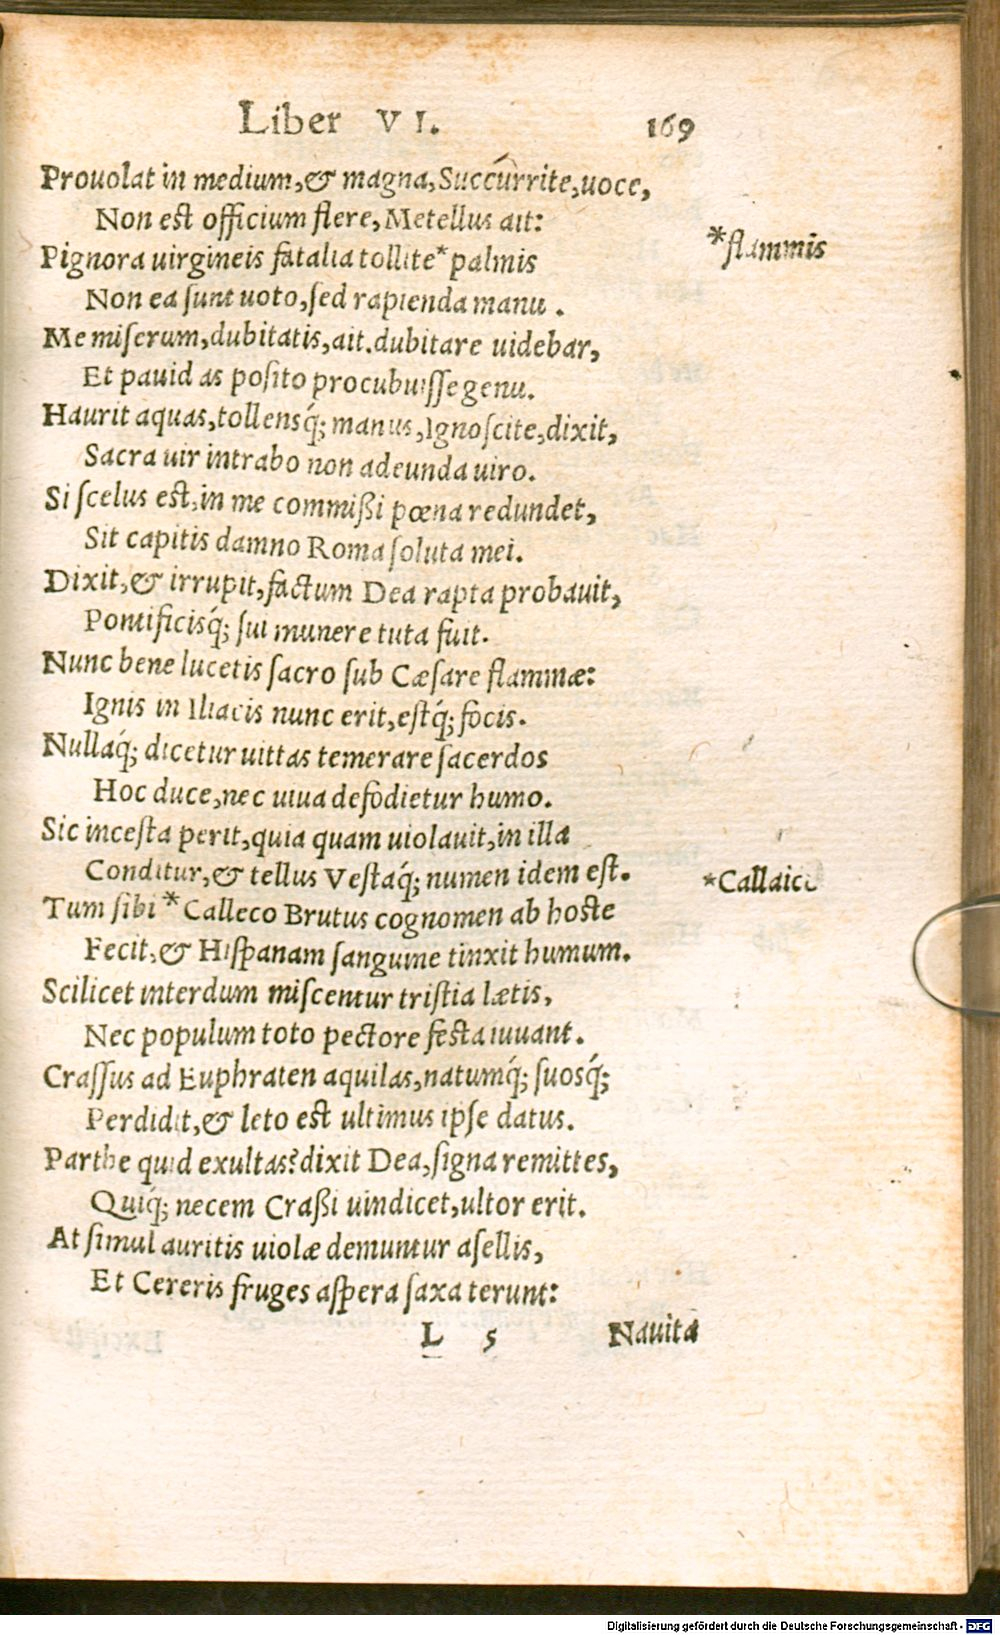 Liber VI. 169
Prouolat in medium, & magna, Succurrite, uoce,
Non est officium flere, Metellus ait:
Pignora uirgineis fatalia tollite* palmis
*flammis
Non ea sunt uoto, sed rapienda manu.
Me miserum, dubitatis, ait. dubitare uidebar,
Et pauidas posito procubuisse genu.
Haurit aquas, tollensq́; manus, Ignoscite, dixit,
Sacra uir intrabo non adeunda uiro.
Si scelus est, in me commißi pœna redundet,
Sit capitis damno Roma soluta mei.
Dixit, & irrupit, factum Dea rapta probauit,
Pontificisq́; sui munere tuta fuit.
Nunc bene lucetis sacro sub Cæsare flammæ:
Ignis in Iliacis nunc erit, estq́; focis.
Nullaq́; dicetur uittas temerare sacerdos
Hoc duce, nec uiua defodietur humo.
Sic incesta perit, quia quam uiolauit, in illa
Conditur, & tellus Vestaq́; numen idem est.
*Callaico
Tum sibi * Calleco Brutus cognomen ab hoste
Fecit, & Hispanam sanguine tinxit humum.
Scilicet interdum miscentur tristia lætis,
Nec populum toto pectore festa iuuant.
Crassus ad Euphraten aquilas, natumq́; suosq́;
Perdidit, & leto est ultimus ipse datus.
Parthe quid exultas? dixit Dea, signa remittes,
Quiq́; necem Craßi uindicet, ultor erit.
At simul auritis uiolæ demuntur asellis,
Et Cereris fruges aspera saxa terunt:
L 5 Nauita
Digitalisierung gefördert durch die Deutsche Forschungsgemeinschaft - DFG